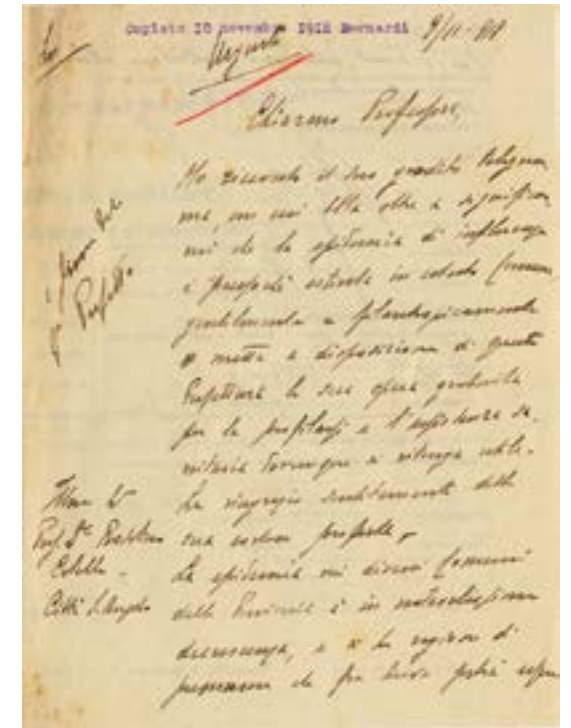 Copiato 10 novembre 1918 Bernardi
9/11-918
Urgente
Chiarmo Professore,
Ho ricevuto il suo gradito telegram
ma, con cui Ella oltre a significar
mi che la epidemia di influenza
è pressoché estinta in codesto Comune
gentilmente e filantropicamente
mette a disposizione di questa
Prefettura la sua opera gratuita
per la profilassi e l'assistenza sa-
nitaria dovunque si ritenga utile.
La ringrazio sentitamente della
sua proposta.
La epidemia nei diversi Comuni
della Provincia è in
decrescenza, e si ha ragione di
che fra breve potrà
firma del
Prefetto
Prof. Dr.
Città S. Angelo